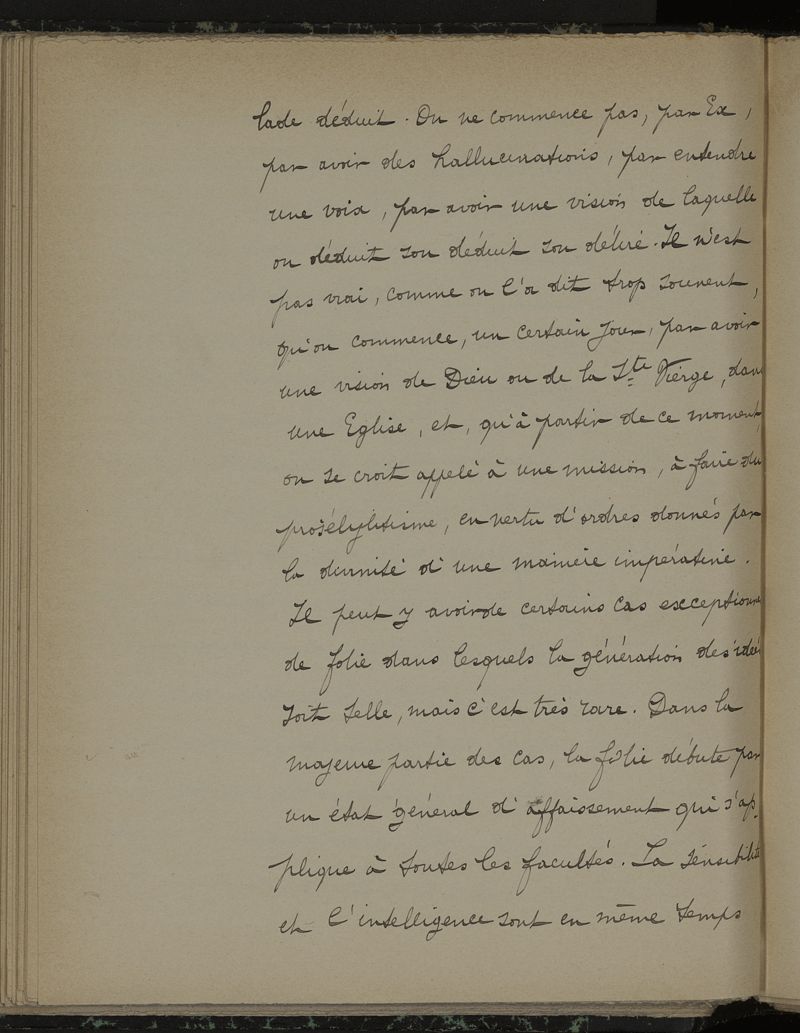 lade déduit. On ne commence pas, par Ex,
par avoir des hallucinations, par entendre
une voix, par avoir une vision de laquelle
on déduit son déduit son délire. Il n'est
pas vrai, comme on l'a dit trop souvent,
qu'on commence, un certain jour, par avoir
une vision de Dieu ou de la Ste Vierge, dans
une Eglise, et, qu'à partir de ce moment,
on se croit appelé à une mission, à faire du
prosélytisme, en vertu d'ordres donnés par
la divinité d'une manière impérative.
Il peut y avoir de certains cas exceptionnels
de folie dans lesquels la génération des idées
soit telle, mais c'est très rare. Dans la
majeure partie des cas, la folie débute par
un état général d'affaissement qui s'ap-
plique à toutes les facultés. La sensibilité
et l'intelligence sont en même temps